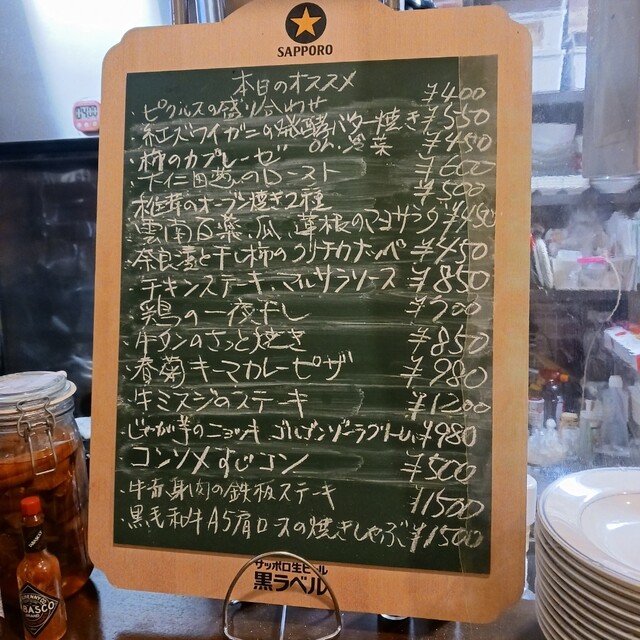 SAPPORO
本日のオススメ
・ピクルスの盛り合わせ ¥400
・紅ズワイガニの発酵バター焼き ¥550
or 白菜 ¥450
・柿のカプレーゼ
のロースト ¥600
・椎茸のオーブン焼き2種 ¥500
・雲南百薬、瓜、蓮根のマヨサラダ ¥450
・奈良漬と干し柿のクリチカナッペ ¥450
・チキンステーキ、マルサラソース ¥850
・鶏の一夜干し ¥700
・牛タンのさっと焼き ¥850
・春菊キーマカレーピザ ¥980
・牛ミスジのステーキ ¥1200
・じゃが芋のニョッキ ゴルゴンゾーラブルー ¥980
・コンソメすじコン ¥500
・牛赤身肉の鉄板ステーキ ¥1500
・黒毛和牛A5肩ロースの焼きしゃぶ ¥1500
サッポロ生ビール
黒ラベル
TABASCO